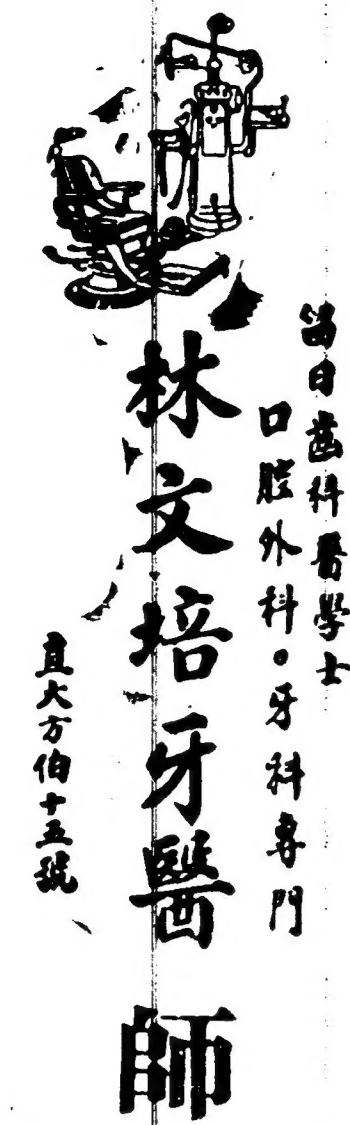 留日齒科醫學士
口腔外科。牙科專門
林文培牙醫師
直大方伯十五號